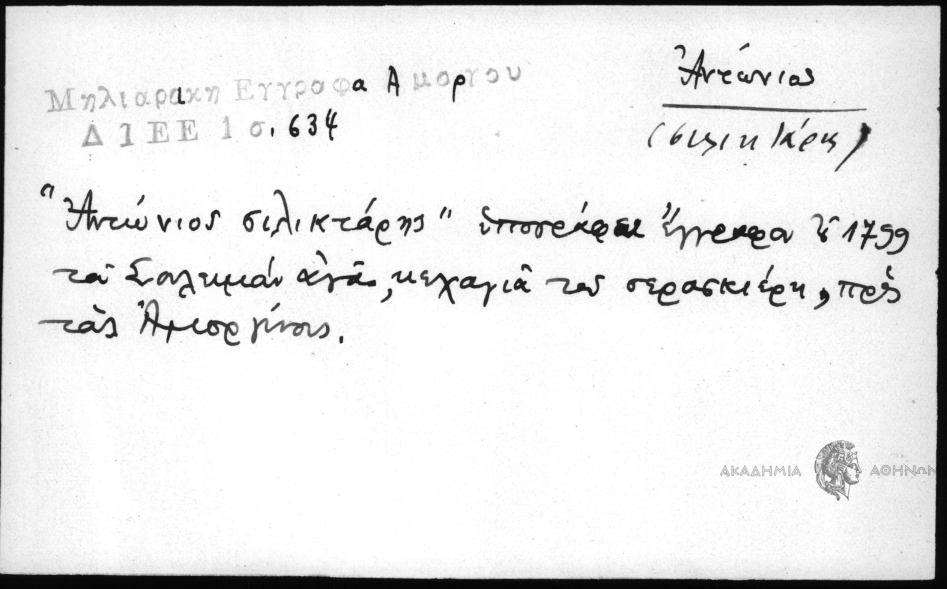 Ἀντώνιος
(σιλικτάρης)
Μηλιαρακη Εγγροφα Αμοργου
ΔΙΕΕ 1 σ. 634
"Ἀντώνιος σιλικτάρης" ὑπογράφει ἔγγραφα τοῦ 1799
τοῦ Σουλεϊμὰν ἀγᾶ, κεχαγιᾶ τοῦ σερασκιέρη, πρὸς
τοὺς Ἀμοργίνους.
ΑΚΑΔΗΜΙΑ ΑΘΗΝΩΝ